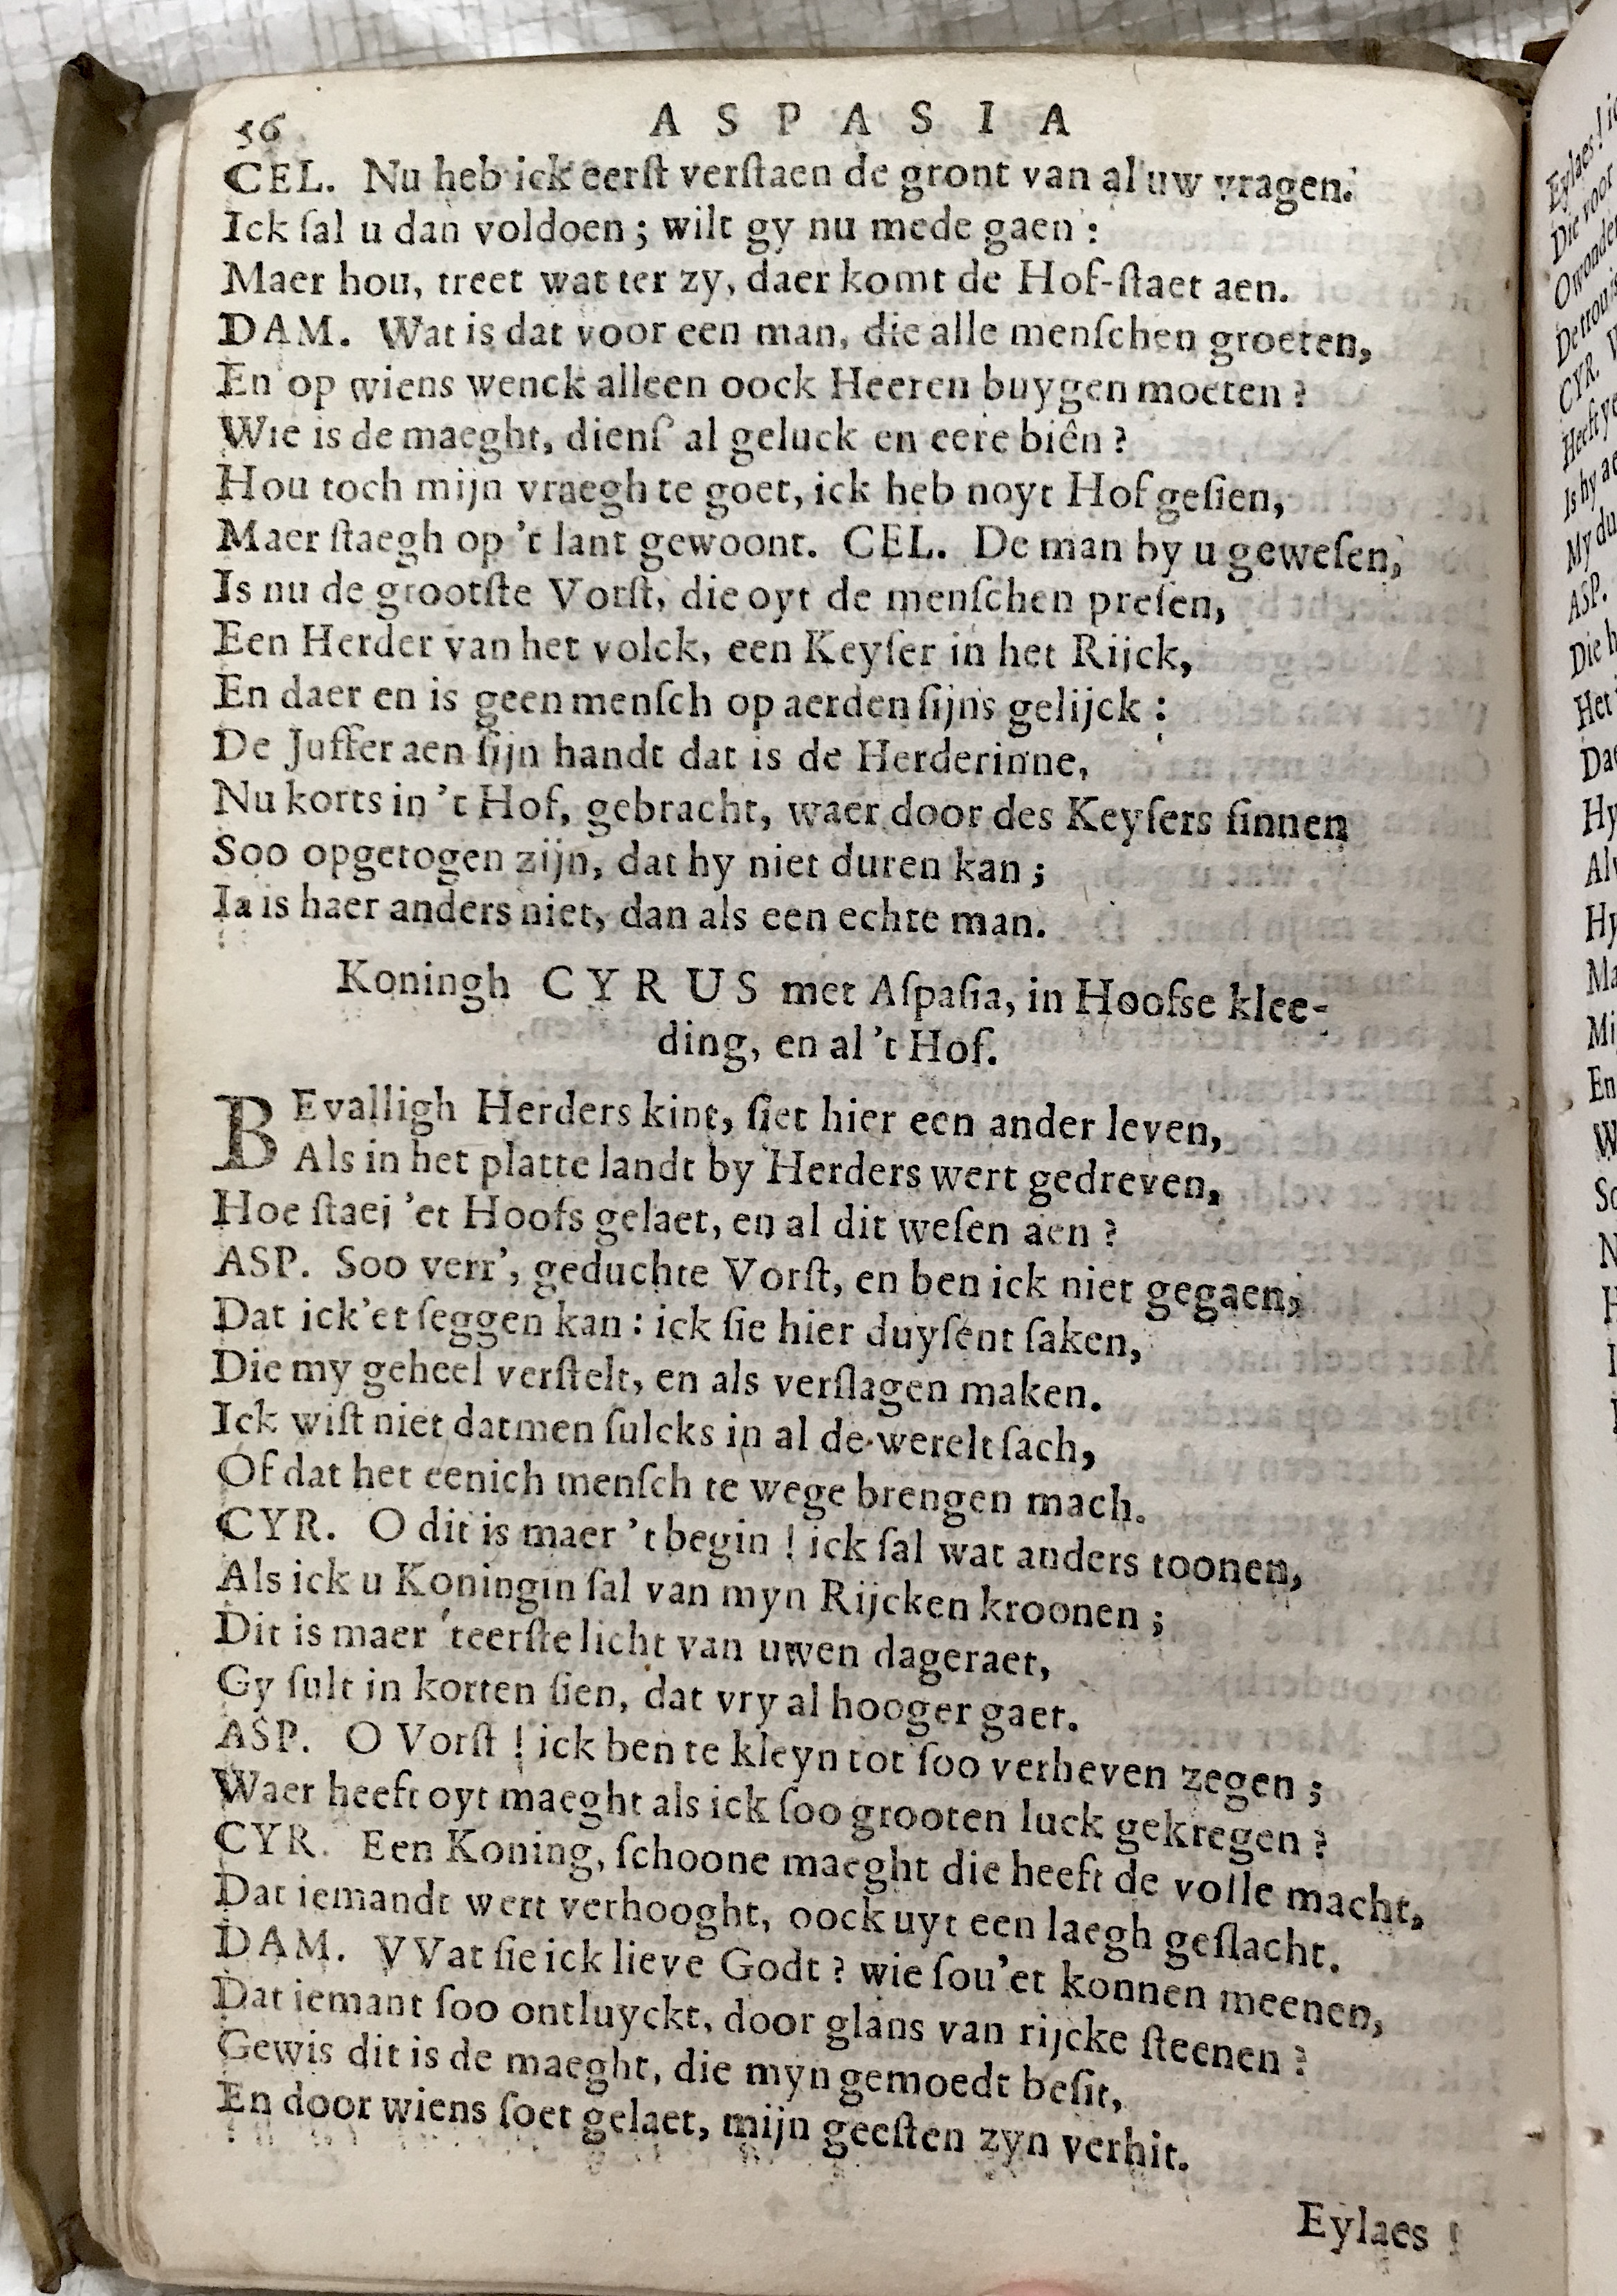 56 ASPASIA
CEL. Nu heb ick eerſt verſtaen de gront van al uw vragen.
Ick ſal u dan voldoen; wilt gy nu mede gaen:
Maer hou, treet wat ter zy, daer komt de Hof-ſtaet aen.
DAM. Wat is dat voor een man, die alle menſchen groeten,
En op wiens wenck alleen oock Heeren buygen moeten?
Wie is de maeght, dienſ' al geluck en eere biên?
Hou toch mijn vraegh te goet, ick heb noyt Hof geſien,
Maer ſtaegh op 't lant gewoont. CEL. De man by u geweſen,
Is nu de grootſte Vorſt, die oyt de menſchen preſen,
Een Herder van het volck, een Keyſer in het Rijck,
En daer en is geen menſch op aerden ſijns gelijck:
De Juffer aen ſijn handt dat is de Herderinne,
Nu korts in 't Hof, gebracht, waer door des Keyſers ſinnen
Soo opgetogen zijn, dat hy niet duren kan;
Ia is haer anders niet, dan als een echte man.
Koningh CYRUS met Aſpaſia, in Hoofse klee-
ding, en al 't Hof.
BEvalligh Herders kint, ſiet hier een ander leven,
Als in het platte landt by Herders wert gedreven,
Hoe ſtaej 'et Hoofs gelaet, en al dit weſen aen?
ASP. Soo verr', geduchte Vorſt, en ben ick niet gegaen,
Dat ick'et ſeggen kan: ick ſie hier duyſent ſaken,
Die my geheel verſtelt, en als verſlagen maken.
Ick wiſt niet datmen ſulcks in al de werelt ſach,
Of dat het eenich menſch te wege brengen mach.
CYR. O dit is maer 't begin! ick ſal wat anders toonen,
Als ick u Koningin ſal van myn Rijcken kroonen;
Dit is maer 'teerſte licht van uwen dageraet,
Gy ſult in korten ſien, dat vry al hooger gaet.
ASP. O Vorſt! ick ben te kleyn tot ſoo verheven zegen;
Waer heeft oyt maeght als ick ſoo grooten luck gekregen?
CYR. Een Koning, ſchoone maeght die heeft de volle macht,
Dat iemandt wert verhooght, oock uyt een laegh geſlacht.
DAM. VVat ſie ick lieve Godt? wie ſou'et konnen meenen,
Dat iemant ſoo ontluyckt, door glans van rijcke ſteenen?
Gewis dit is de maeght, die myn gemoedt beſit,
En door wiens ſoet gelaet, mijn geeſten zyn verhit.
Eylaes!